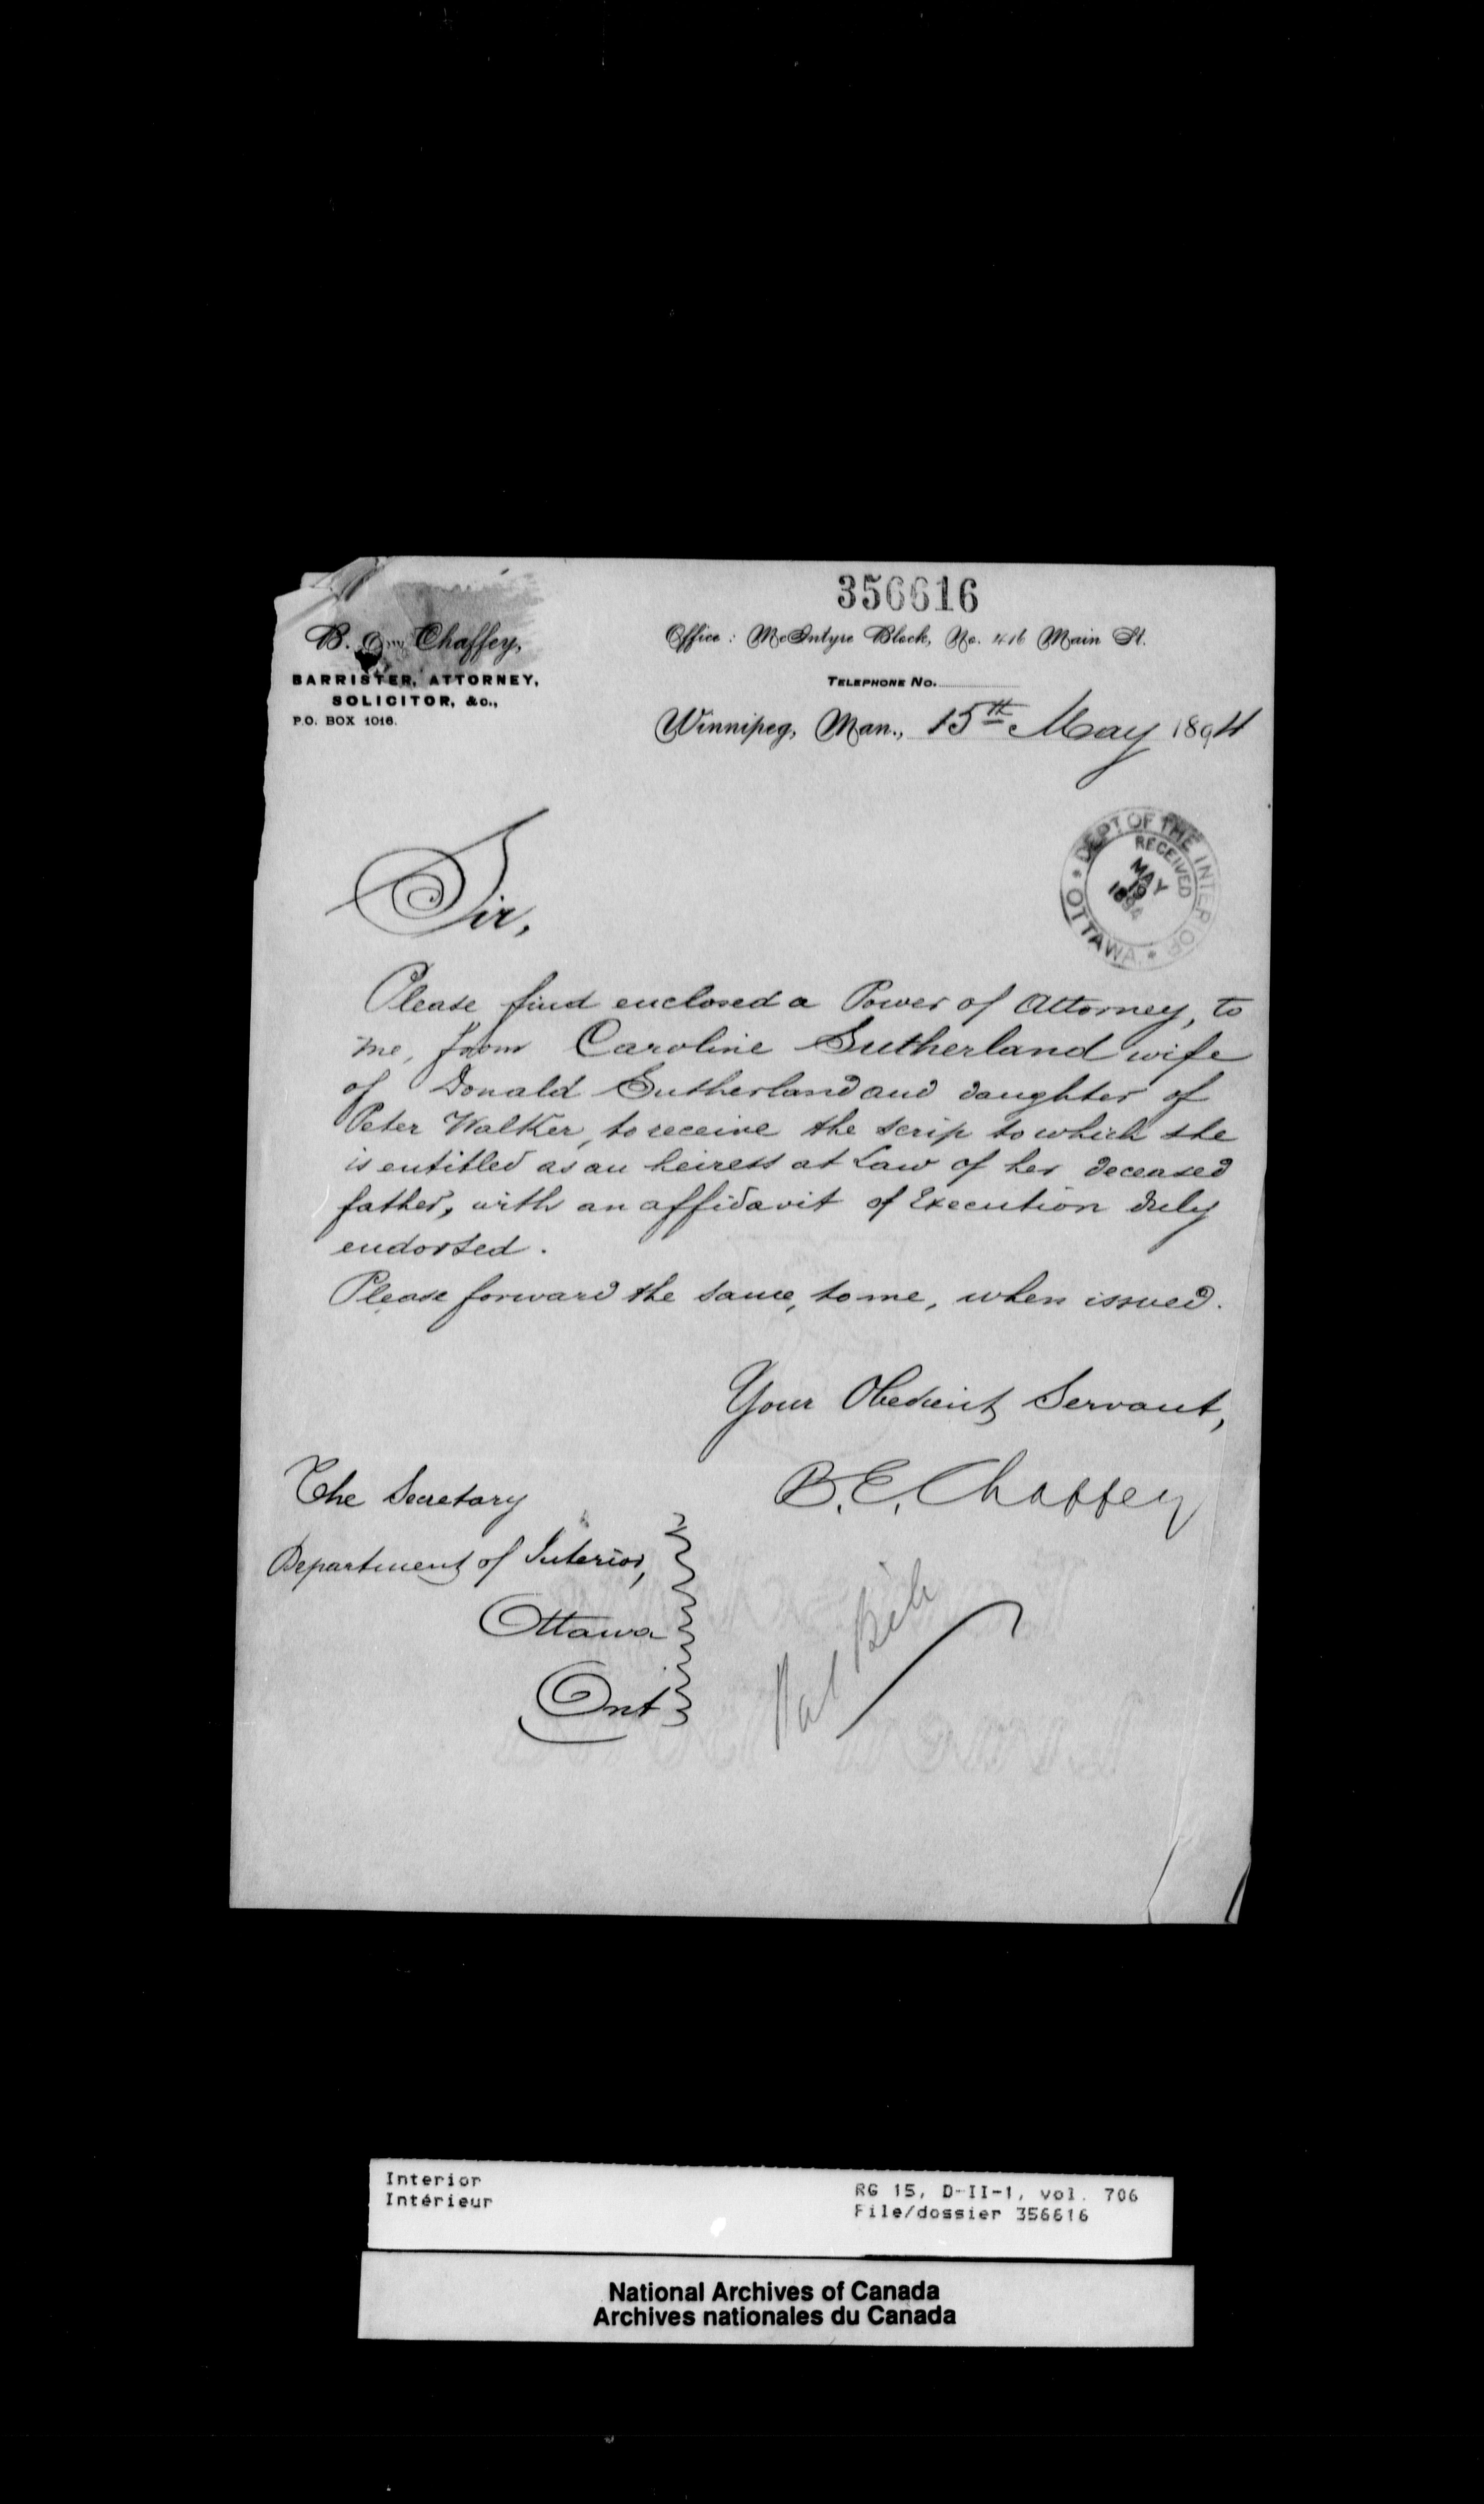 356616
B. E. Chaffey,
BARRISTER, ATTORNEY,
SOLICITOR, &c.,
P.O. BOX 1016.
Office: McIntyre Block, No. 416 Main St.
TELEPHONE No.
Winnipeg, Man., 15th May 1894
DEPT OF THE INTERIOR
RECEIVED
MAY
19
1894
OTTAWA
Sir,
Please find enclosed a Power of Attorney, to
me, from Caroline Sutherland wife
of Donald Sutherland and daughter of
Peter Walker, to receive the scrip to which she
is entitled as an heiress at Law of her deceased
father, with an affidavit of Execution duly
endorsed.
Please forward the same, to me, when issued.
Your Obedient Servant,
B. E. Chaffey
The Secretary
Department of Interior,
Ottawa
Ont
Interior
Intérieur
RG 15, D-II-1, vol. 706
File/dossier 356616
National Archives of Canada
Archives nationales du Canada